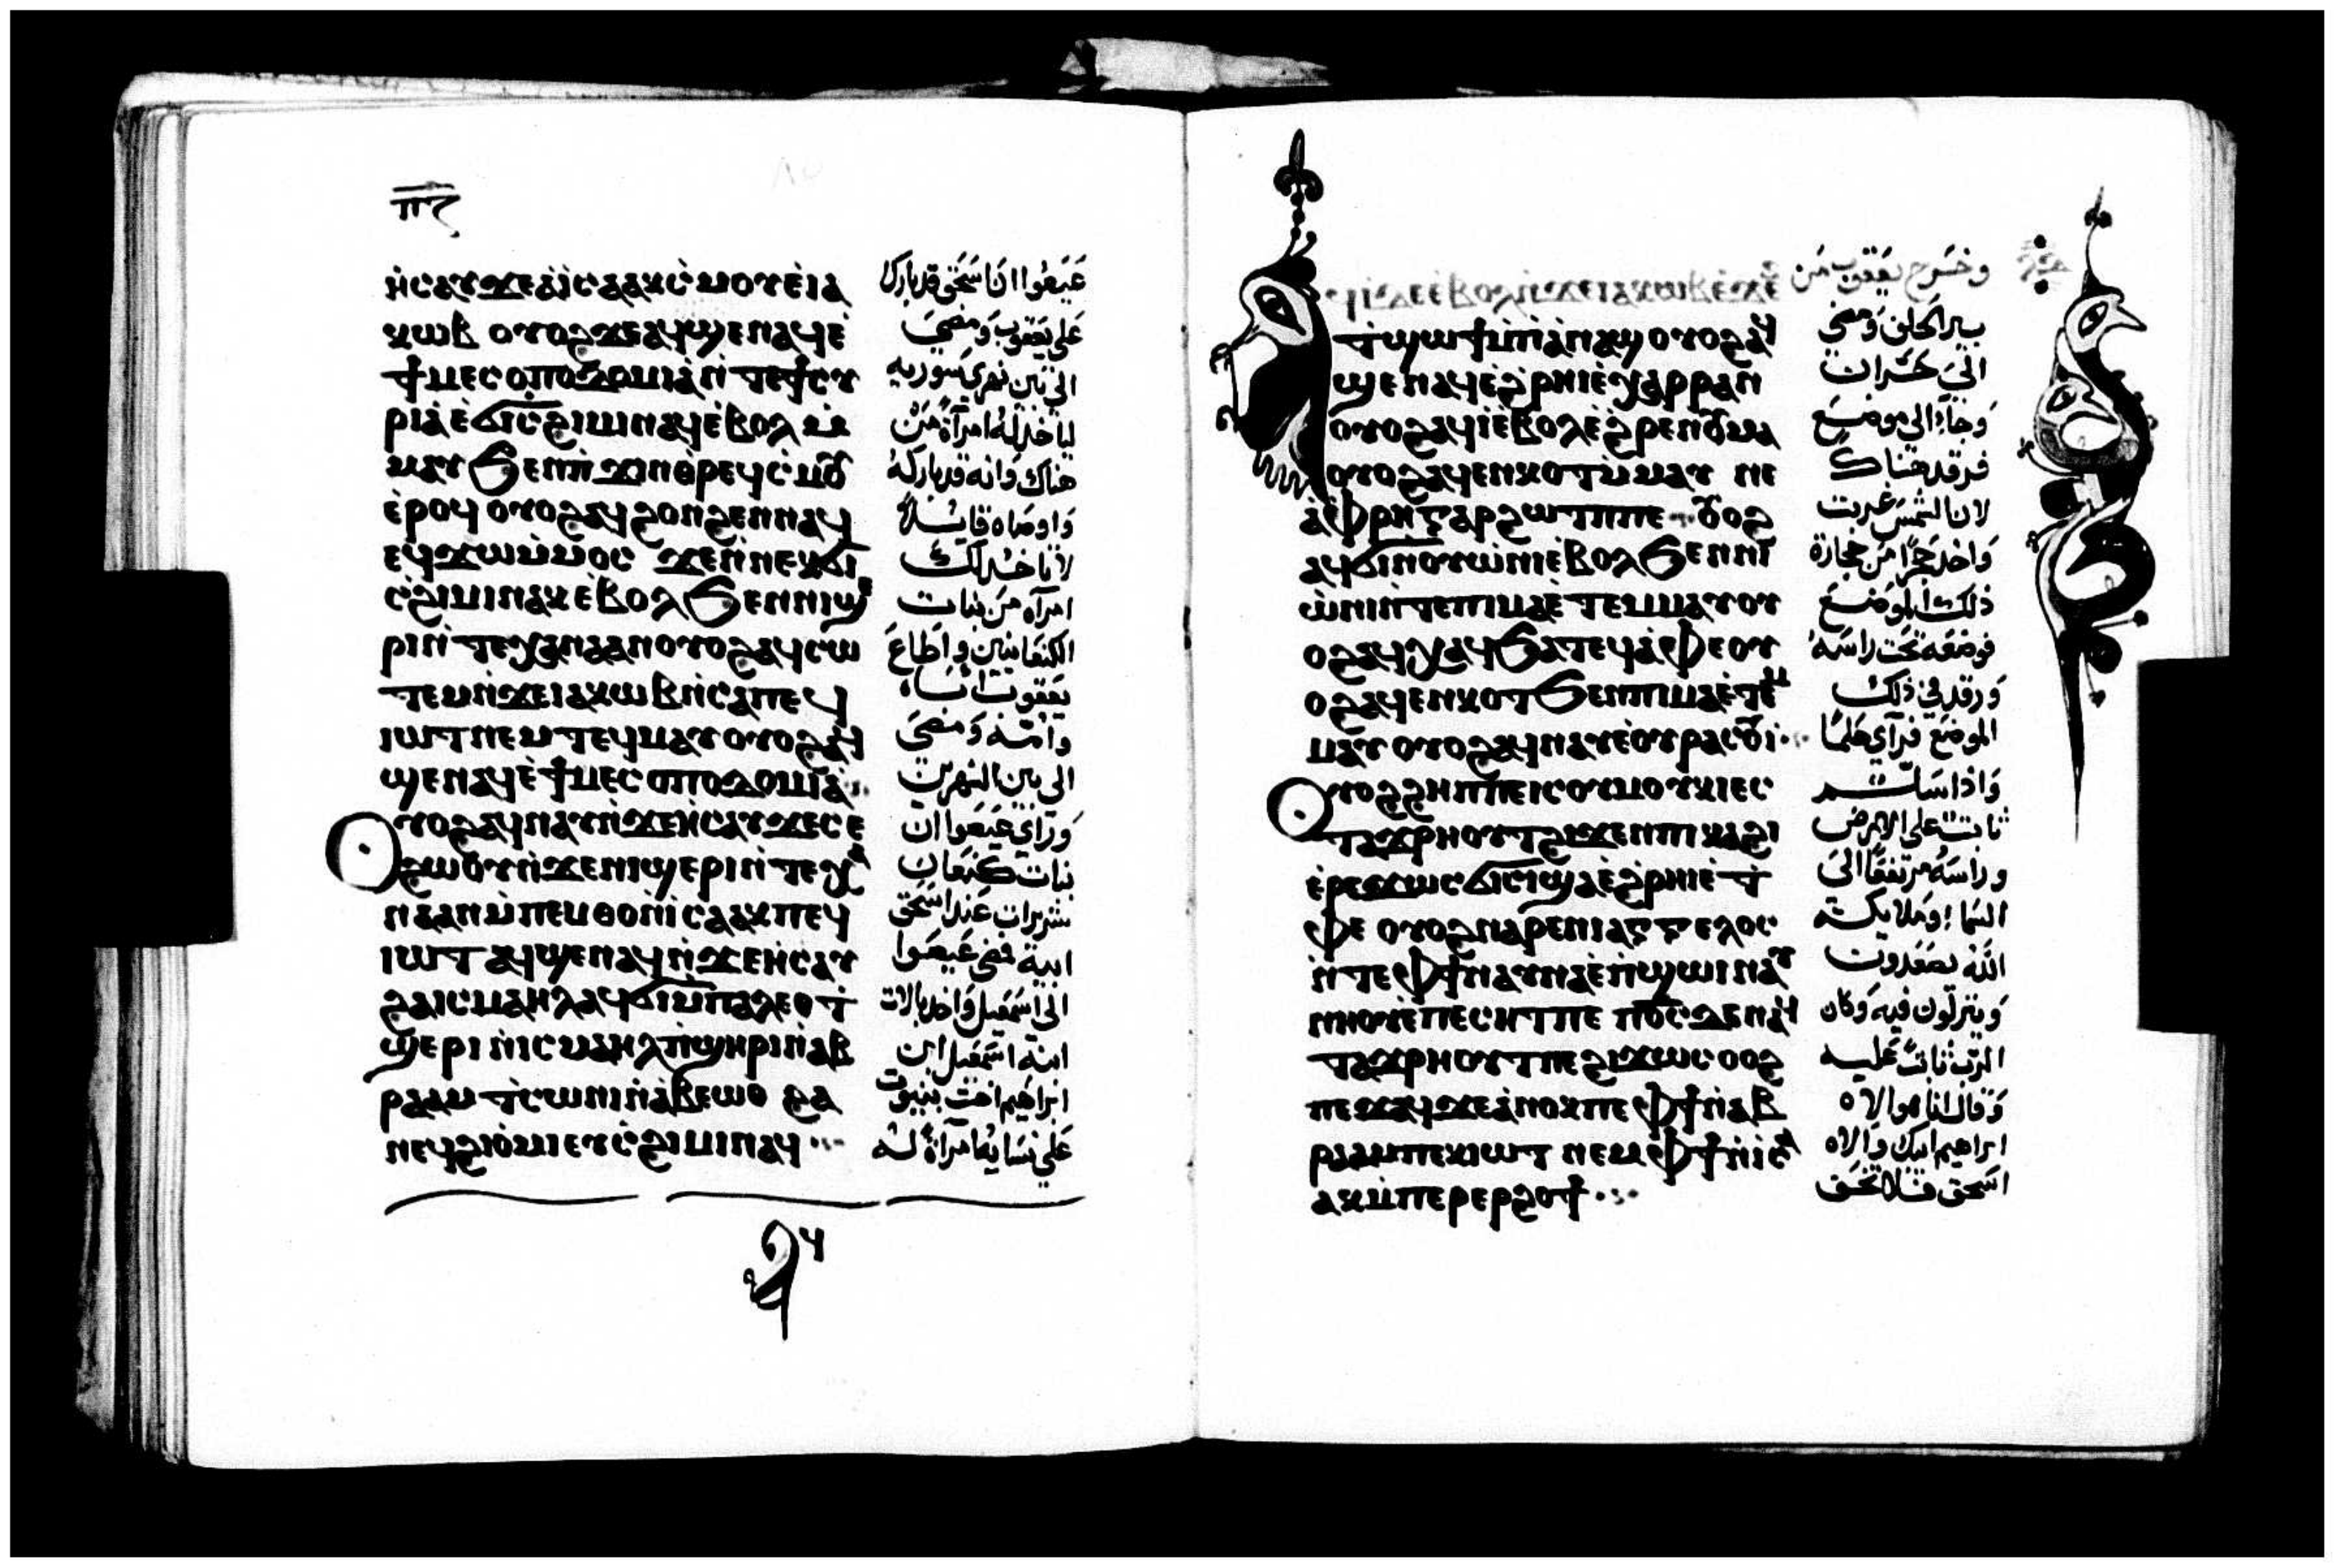 ⲡⲍ
ⲛ̀ⲥⲁⲩϫⲉⲁ̀ⲓ̀ⲥⲁⲁⲕⲥ̀ⲙⲟⲩⲉ̀ⲓⲁ
ⲕⲱⲃ ⲟⲩⲟϩϫⲉⲁϥϣⲉⲛⲁϥⲉ̀
ϯⲙⲉⲥⲟⲡⲟⲇⲟⲙⲓⲁ̀ⲛ̀ⲧⲉϯⲥⲩ
ⲣⲓⲁ̀ⲉ̀ϭⲓⲥ̀ϩⲓⲙⲓⲛⲁϥⲉ̀ⲃⲟⲗⲙ̀
ⲙⲁⲩϧⲉⲛⲡ̀ϫⲓⲛⲑⲣⲉϥⲥ̀ⲙⲟⲩ
ⲉ̀ⲣⲟϥ ⲟⲩⲟϩⲁϥϩⲟⲛϩⲉⲛⲛⲁϥ
ⲉϥϫⲱⲙ̀ⲙⲟⲥ ϫⲉⲛ̀ⲛⲉⲕϭⲓ
ⲥ̀ϩⲓⲙⲓⲛⲁⲕⲉ̀ⲃⲟⲗϧⲉⲛⲛⲓϣⲉ
ⲣⲓⲛ̀ⲧⲉⲭⲁⲛⲁⲁⲛⲟⲩⲟϩⲁϥⲥⲱ
ⲧⲉⲙⲛ̀ϫⲉⲓⲁⲕⲱⲃⲛ̀ⲥⲁⲡⲉϥ
ⲓⲱⲧⲛⲉⲙⲧⲉϥⲙⲁⲩⲟⲩⲟϩⲁϥ
ϣⲉⲛⲁϥⲉ̀ϯⲙⲉⲥⲟⲡⲟⲇⲟⲙⲓⲁ
ⲟⲩⲟϩⲁϥⲛⲁⲩⲛ̀ϫⲉⲏ̀ⲥⲁⲩϫⲉⲥⲉ
ϩⲱⲟⲩⲛ̀ϫⲉⲛⲓϣⲉⲣⲓⲛ̀ⲧⲉⲭⲁ
ⲛⲁⲁⲛⲙ̀ⲡⲉⲙⲑⲟⲛ̀ⲓⲥⲁⲁⲕⲡⲉϥ
ⲓⲱⲧ ⲁϥϣⲉⲛⲁϥⲛ̀ϫⲉⲏ̀ⲥⲁⲩ
ϩⲁⲓⲥⲙⲁⲏⲗⲁϥϭⲓⲙ̀ⲙⲁⲗⲉⲑϯ
ϣⲉⲣⲓ ⲛ̀ⲓⲥⲙⲁⲏⲗⲡ̀ϣⲏⲣⲓⲛ̀ⲁⲃ
ⲣⲁⲁⲙ ⲧ̀ⲥⲱⲛⲓⲛ̀ⲁⲃⲉⲱⲑ ϩⲁ
ⲛⲉϥϩⲓⲟ̀ⲙⲓⲉⲩⲥ̀ϩⲓⲙⲓⲛⲁϥ
عيصوا ان اسحق قد بارك
على يعقوب ومضى
الى بين نهري سوريه
لياخذ له امرأة من
هناك وانه قد باركه
واوصاه قايلا
لا تاخذ لك
امرأه من بنات
الكنعانيين واطاع
يعقوب اباه
وامه ومضى
الى بين النهرين
وراى عيصوا ان
بنات كنعان
شريرات عند اسحق
ابيه فمضى عيصوا
الى اسمعيل واخذ بالات
ابنة اسمعيل ابن
ابراهيم اخت نبيوت
على نسايه امرأة له
ⲁϥⲓ̀ⲇⲉⲉ̀ⲃⲟⲗⲛ̀ϫⲉⲓⲁⲕⲱⲃⲉ̀ϫⲉ
ⲛ̀ϯϣⲱϯⲙ̀ⲡⲁ̀ⲛⲁϣ ⲟⲩⲟϩⲁϥ
ϣⲉⲛⲁϥⲉ̀ϩ̀ⲣⲏⲓⲉ̀ⲭⲁⲣⲣⲁⲛ
ⲟⲩⲟϩⲁϥⲓ̀ⲉ̀ⲃⲟⲗⲉ̀ϩ̀ⲣⲉⲛⲟⲩⲙⲁ
ⲟⲩⲟϩⲁϥⲉⲛⲕⲟⲧⲙ̀ⲙⲁⲩ ⲛⲉ
ⲁ̀ⲫⲣⲏⲅⲁⲣϩⲱⲧⲡⲡⲉ ⲟⲩⲟϩ
ⲁϥϭⲓⲛ̀ⲟⲩⲱ̀ⲛⲓⲉ̀ⲃⲟⲗϧⲉⲛⲛⲓ
ⲱ̀ⲛⲓⲛ̀ⲧⲉⲡⲓⲙⲁⲉ̀ⲧⲉⲙⲙⲁⲩⲟⲩ
ⲟϩⲁϥⲭⲁϥϧⲁⲧⲉϥⲁ̀ⲫⲉⲟⲩ
ⲟϩⲁϥⲉⲛⲕⲟⲧϧⲉⲛⲡⲓⲙⲁⲉ̀ⲧⲉⲙ
ⲙⲁⲩ ⲟⲩⲟϩⲁϥⲛⲁⲩⲉ̀ⲟⲩⲣⲁⲥⲟⲩⲓ
ⲟⲩⲟϩϩⲏⲡⲡⲉⲓⲥⲟⲩⲙⲟⲩⲕⲓⲉⲥ
ⲧⲁϫⲣⲏⲟⲩⲧϩⲓϫⲉⲛⲡⲓⲕⲁϩⲓ
ⲉ̀ⲣⲉϫⲱⲥϭⲓⲥⲓϣⲁⲉ̀ϩ̀ⲣⲏⲓⲉ̀ⲧ̀
ⲫⲉ ⲟⲩⲟϩⲛⲁⲣⲉⲛⲓⲁⲅⲅⲉⲗⲟⲥ
ⲛ̀ⲧⲉⲫϯⲛⲁⲩⲛⲁⲉ̀ⲡ̀ϣⲱⲓⲛⲁⲩ
ⲛⲏⲟⲩⲉ̀ⲡⲉⲥⲏⲧⲡⲉ ⲡⲟ̅ⲥ̅ⲇⲉⲛⲁϥ
ⲧⲁϫⲣⲏⲟⲩⲧⲡⲉϩⲓϫⲱⲥⲟⲟϩ
ⲡⲉϫⲁϥϫⲉⲁ̀ⲛⲟⲕⲡⲉⲫϯⲛ̀ⲁⲃ
ⲣⲁⲁⲙⲡⲉⲕⲓⲱⲧ ⲛⲉⲙⲫϯⲛ̀ⲓⲥⲁ
ⲁⲕⲙ̀ⲡⲉⲣⲉⲣϩⲟϯ
وخرج يعقوب من
بير الحلف ومضى
الى حران
وجاء الى موضع
فرقد هناك
لان الشمس غربت
واخذ حجرا من حجارة
ذلك الموضع
فوضعه تحت راسه
ورقد في ذلك
الموضع فرآى حلما
واذا سلم
ثابت على الارض
وراسه مرتفعا الى
السماء وملايكة
الله يصعدون
وينزلون فيه وكان
الرب ثابتا عليه
وقال انا هو الاه
ابراهيم ابيك والاه
اسحق فلا تخف